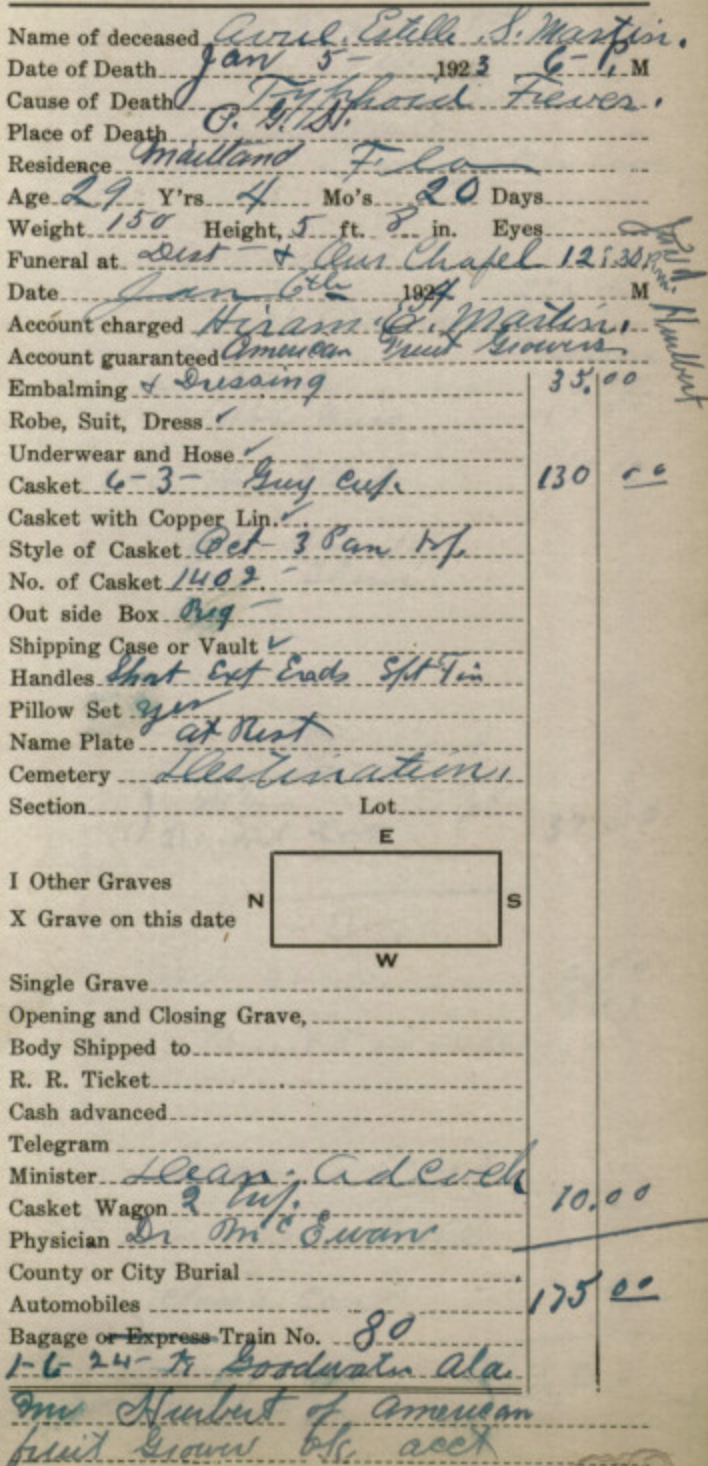 Name of deceased Avrie Estelle S. Martin.
Date of Death Jan 5- 1923 6- P. M
Cause of Death Typhoid Fever.
Place of Death O. G. H.
Residence Maitland Fla
Age 29 Y'rs 4 Mo's 20 Days
Weight 150 Height, 5 ft. 8 in. Eyes
Funeral at Dest - & Our Chapel 12:30 P.m.
Date Jan 6th 1924 M
Account charged Hiram E. Martin.
Account guaranteed American Fruit Growers
Hurlbert
Embalming & Dressing 35.00
Robe, Suit, Dress ✓
Underwear and Hose ✓
Casket 6-3- Grey 130 00
Casket with Copper Lin. ✓
Style of Casket Oct- 3 Pan
No. of Casket 1402 -
Out side Box Reg -
Shipping Case or Vault ✓
Handles Short Ext Ends
Pillow Set yes
Name Plate at Rest
Cemetery Destination.
Section Lot
E
I Other Graves
N S
X Grave on this date
W
Single Grave
Opening and Closing Grave,
Body Shipped to
R. R. Ticket
Cash advanced
Telegram
Minister Dean. Adcock
Casket Wagon 2 10.00
Physician Dr McEwan
County or City Burial
Automobiles 175 00
Bagage or Express Train No. 80
1-6-24- To Goodwater Ala.
Mr Hurlbert of American
fruit Grower ok. acct